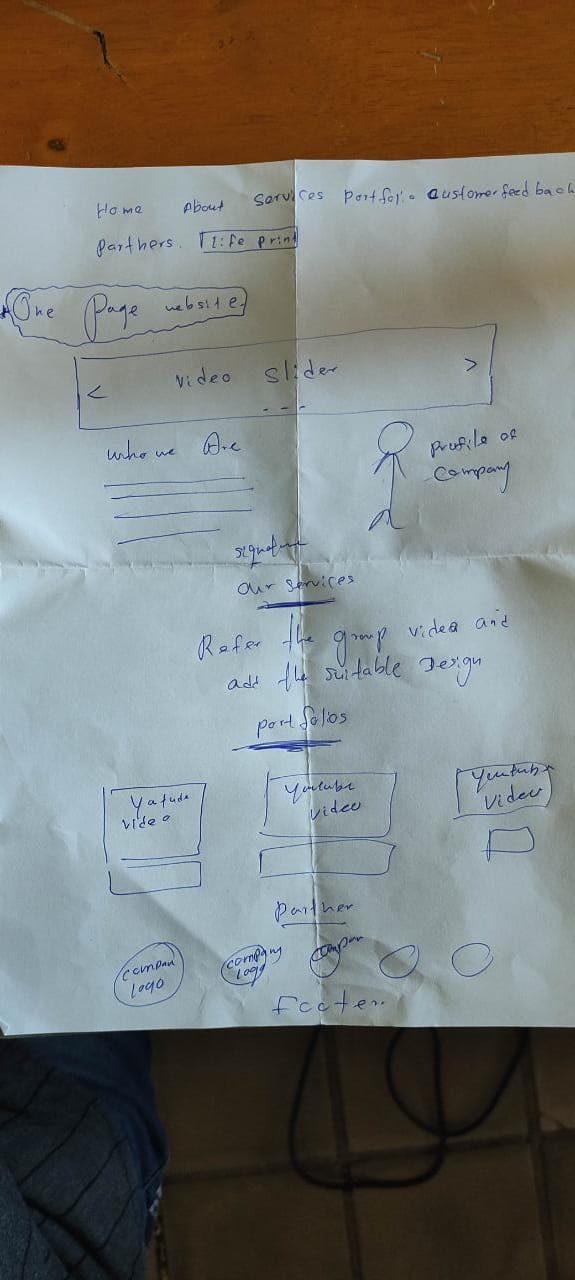 Home About Services Portfolio Customer feed back
Parthers. Life print
One Page website.
< Video Slider >
- - -
who we Are
profile of
company
signature
Our services
Refer the group video and
add the suitable Design
portfolios
Yatude
video
Youtube
video
Youtube
Video
Partner
compan
logo
company
logo
compan
footer.